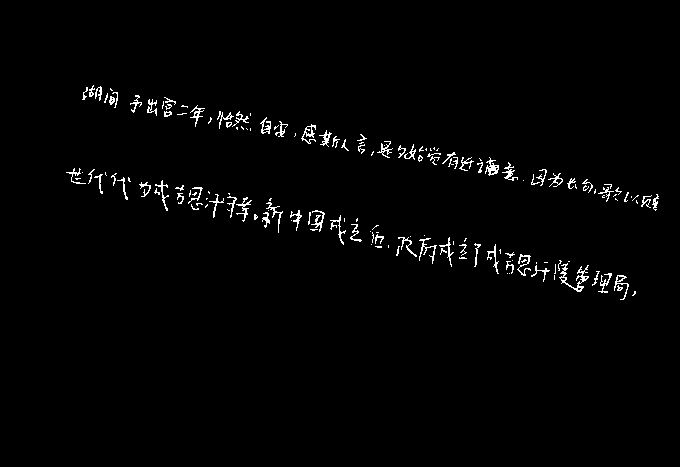 湖间予出官二年,恬然自安,感斯人言,是夕始觉有迁谪意.因为长句,歌以赠
世代代为成吉思汗守孝。新中国成立后.政府成立了成吉思汗陵管理局,